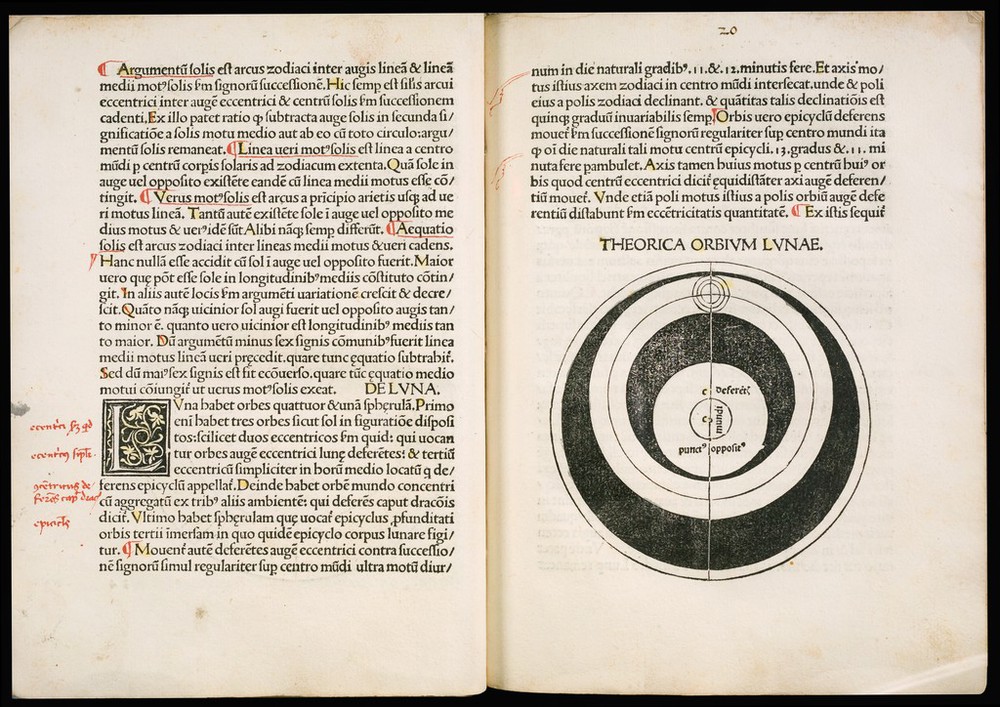 Argumentū solis est arcus zodiaci inter augis lineā & lineā
medii motꝰ solis ẜm signorū successionē. Hic semp est sīlis arcui
eccentrici inter augē eccentrici & centrū solis ẜm successionem
cadenti. Ex illo patet ratio ꝙ subtracta auge solis in secunda si/
gnificatiōe a solis motu medio aut ab eo cū toto circulo: argu/
mentū solis remaneat. Linea ueri motꝰ solis est linea a centro
mūdi p centrū corpis solaris ad zodiacum extenta. Quā sole in
auge uel opposito existēte eandē cū linea medii motus esse cō/
tingit. Verus motꝰ solis est arcus a pricipio arietis usq; ad ue
ri motus lineā. Tantū autē existēte sole ī auge uel opposito me
dius motus & uerꝰ idē sūt Alibi nāq; semp differūt. Aequatio
solis est arcus zodiaci inter lineas medii motus & ueri cadens.
Hanc nullā esse accidit cū sol ī auge uel opposito fuerit. Maior
uero quę pōt esse sole in longitudinibꝰ mediis cōstituto cōtin/
git. In aliis autē locis ẜm argumēti uariationē crescit & decre/
scit. Quāto nāq; uicinior sol augi fuerit uel opposito augis tan/
to minor ē. quanto uero uicinior est longitudinibꝰ mediis tan
to maior. Dū argumētū minus sex signis cōmunibꝰ fuerit linea
medii motus lineā ueri pręcedit. quare tunc ęquatio subtrahit̄.
Sed dū maiꝰ sex signis est fit ecōuerso. quare tūc ęquatio medio
motui cōiungit̄ ut uerus motꝰ solis exeat. DE LVNA.
LVna habet orbes quattuor & unā sphęrulā. Primo
ecentrici ẜm qd
enī habet tres orbes sicut sol in figuratiōe disposi
tos: scilicet duos eccentricos ẜm quid: qui uocan
ecentricꝰ siplr.
tur orbes augē eccentrici lunę deferētes: & tertiū
eccentricū simpliciter in horū medio locatū q de/
ferens epicyclū appellat̄. Deinde habet orbē mundo concentri
cū aggregatū ex tribꝰ aliis ambientē: qui deferēs caput dracōis
dicit̄. Vltimo habet sphęrulam quę uocat̄ epicyclus, pfunditati
epiciclꝰ
orbis tertii imersam in quo quidē epicyclo corpus lunare figi/
tur. Mouent̄ autē deferētes augē eccentrici contra successio/
nē signorū simul regulariter sup centro mūdi ultra motū diur/
20
num in die naturali gradibꝰ. 11. &. 12. minutis fere. Et axis mo/
tus istius axem zodiaci in centro mūdi intersecat. unde & poli
eius a polis zodiaci declinant. & quātitas talis declinatiōis est
quinq; graduū inuariabilis semp. Orbis uero epicyclū deferens
mouet̄ ẜm successionē signorū regulariter sup centro mundi ita
ꝙ oī die naturali tali motu centrū epicycli. 13. gradus &. 11. mi
nuta fere pambulet. Axis tamen huius motus p centrū huiꝰ or
bis quod centrū eccentrici dicit̄ ęquidistāter axi augē deferen/
tiū mouet̄. Vnde etiā poli motus istius a polis orbiū augē defe
rentiū distabunt ẜm eccētricitatis quantitatē. Ex istis sequit̄
THEORICA ORBIVM LVNAE.
c deferētꝭ
c mundi
punctꝰ oppositꝰ